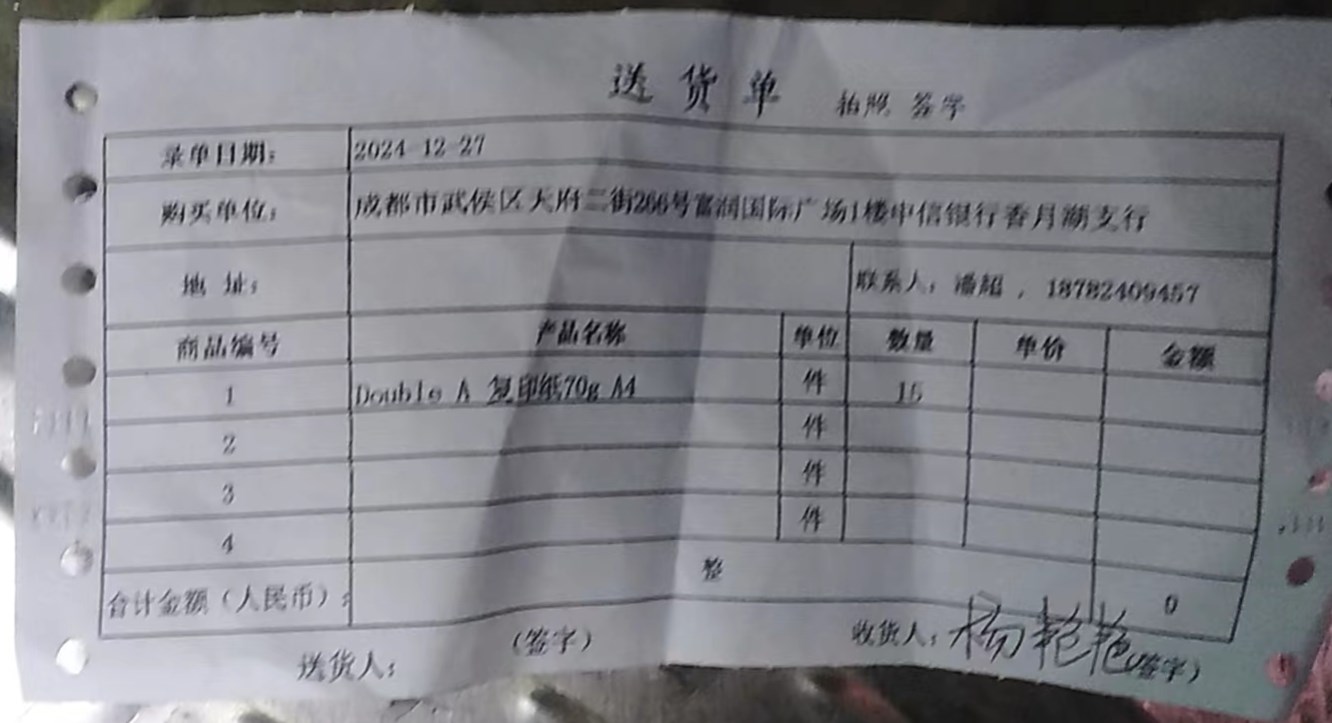 送货单 拍照 签字
录单日期: 2024-12-27
购买单位: 成都市武侯区天府二街266号富润国际广场1楼中信银行香月湖支行
地 址: 联系人: 潘超 , 18782409457
商品编号 产品名称 单位 数量 单价 金额
1 Double A 复印纸70g A4 件 15
2 件
3 件
4 件
合计金额(人民币): 整 0
送货人: (签字) 收货人: 杨艳艳 (签字)